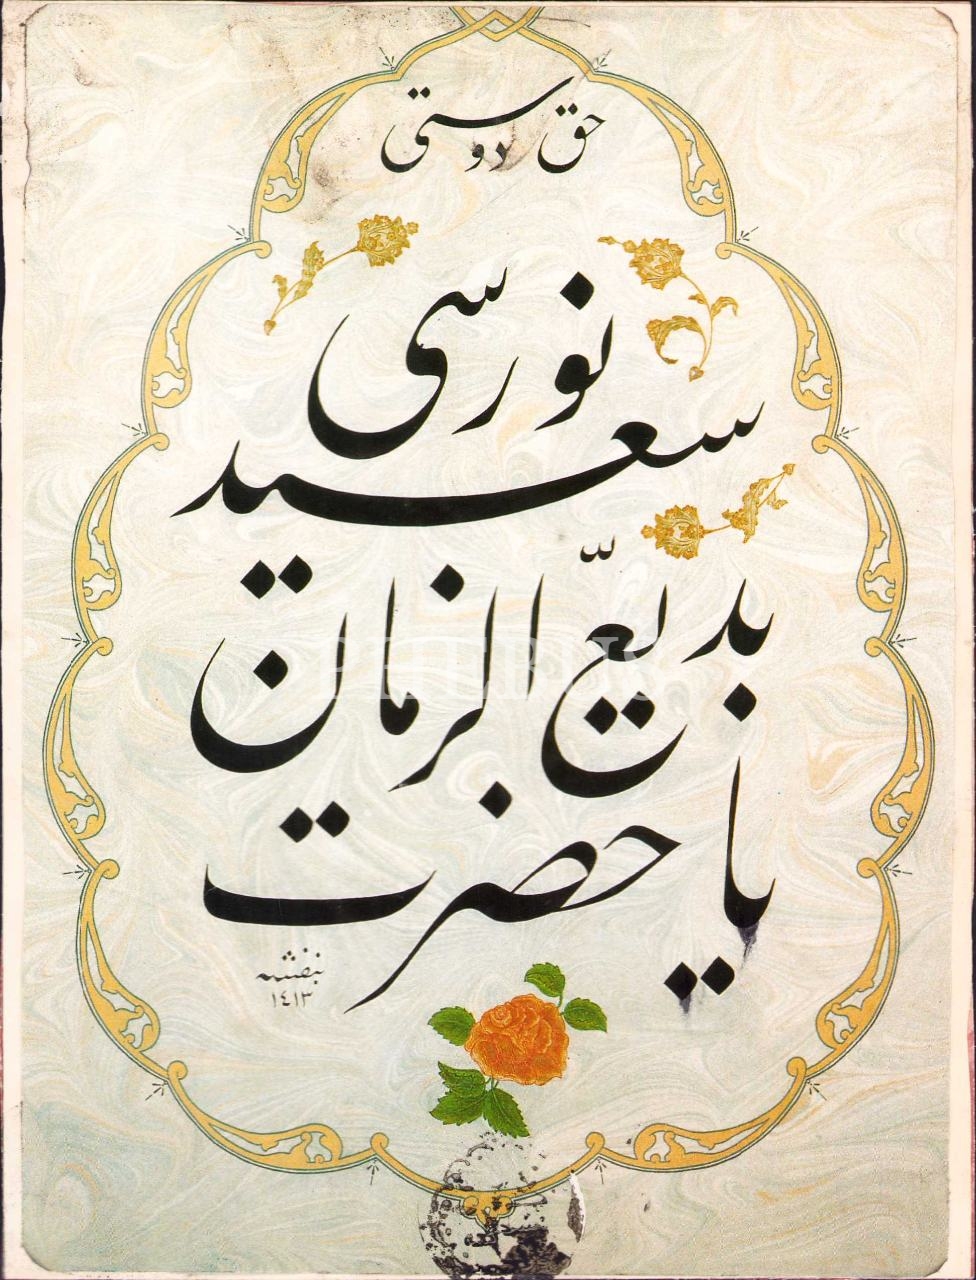 یا حضرت
بدیع الزمان
سعید
نورسی
حق دوستی
بنفشه
١٤١٣